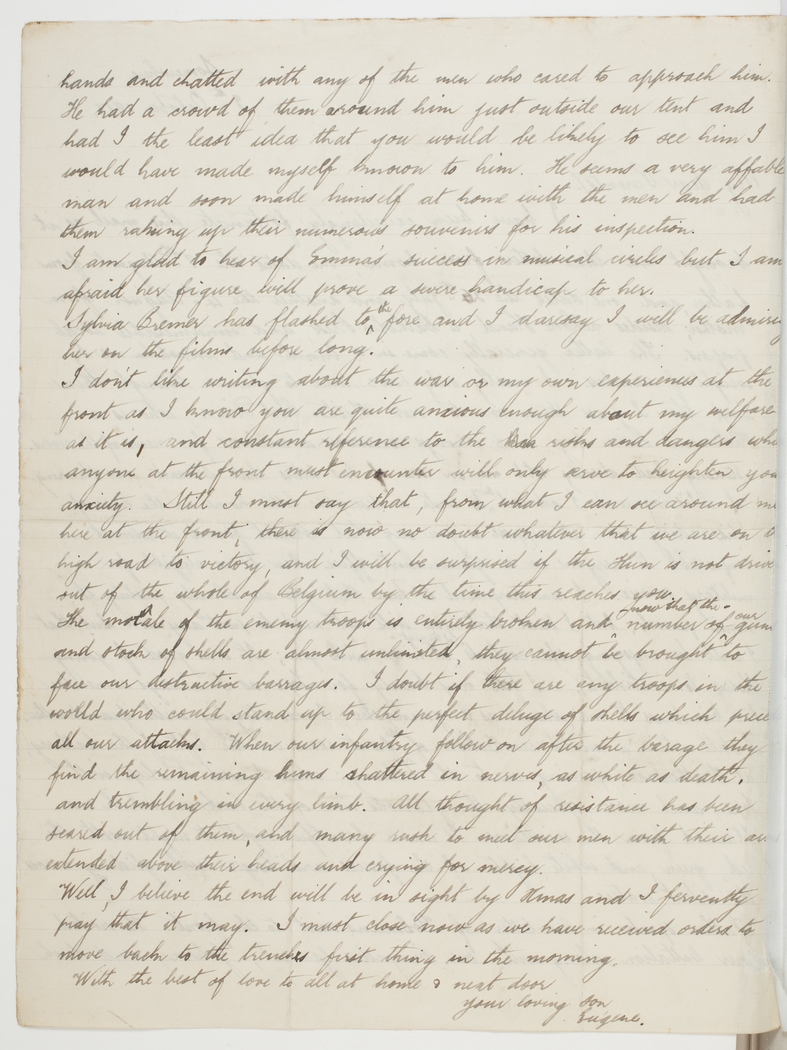 hands and chatted with any of the men who cared to approach him.
He had a crowd of them around him just outside our tent and
had I the least idea that you would be likely to see him I
would have made myself known to him. He seems a very affable
man and soon made himself at home with the men and had
them raking up their numerous souvenirs for his inspection.
I am glad to hear of Emma's success in musical circles but I am
afraid her figure will prove a severe handicap to her.
Sylvia Bremer has flashed to the fore and I daresay I will be admiring
her on the films before long.
I don't like writing about the war or my own experiences at the
front as I know you are quite anxious enough about my welfare
as it is, and constant reference to the risks and dangers whi
anyone at the front must encounter will only serve to heighten you
anxiety. Still I must say that, from what I can see around me
here at the front, there is now no doubt whatever that we are on
high road to victory, and I will be surprised if the Hun is not drive
out of the whole of Belgium by the time this reaches you.
The morale of the enemy troops is entirely broken and now that the number of our guns
and stock of shells are almost unlimited, they cannot be brought to
face our destructive barrages. I doubt if there are any troops in the
world who could stand up to the perfect deluge of shells which prece
all our attacks. When our infantry follow on after the barage they
find the remaining huns shattered in nerves, as white as death,
and trembling in every limb. All thought of resistance has been
scared out of them, and many rush to meet our men with their ar
extended above their heads and crying for mercy.
Well, I believe the end will be in sight by Xmas and I fervently
pray that it may. I must close now as we have received orders to
move back to the trenches first thing in the morning.
With the best of love to all at home & next door
your loving son
Eugene.